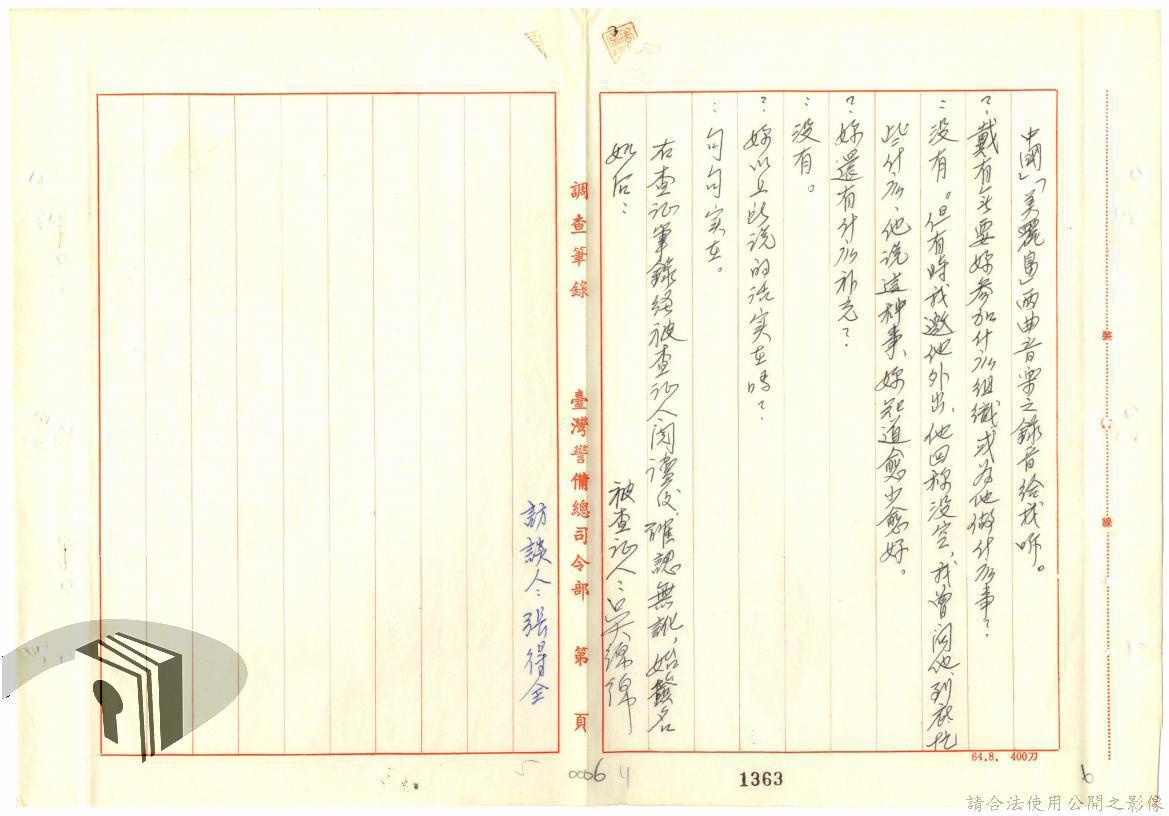 中國」「美麗島」兩曲音樂之錄音給我听。
？：戴有無要妳參加什麼組織或為他做什麼事？
：沒有。但有時我邀他外出、他回称沒空，我曾问他、到底忙
些什麼、他说這种事、妳知道愈少愈好。
？：妳還有什麼补充？
：沒有。
？：妳以上所说的话实在嗎？
：句句实在。
右查证筆錄经被查证人阅讀后確認無訛，始簽名
如后：
被查证人：吴錦
調查筆錄
臺灣警備總司令部
第 頁
訪談人：張得全
裝
線
64.8. 400刀
1363
0006
4
5
6
請合法使用公開之影像